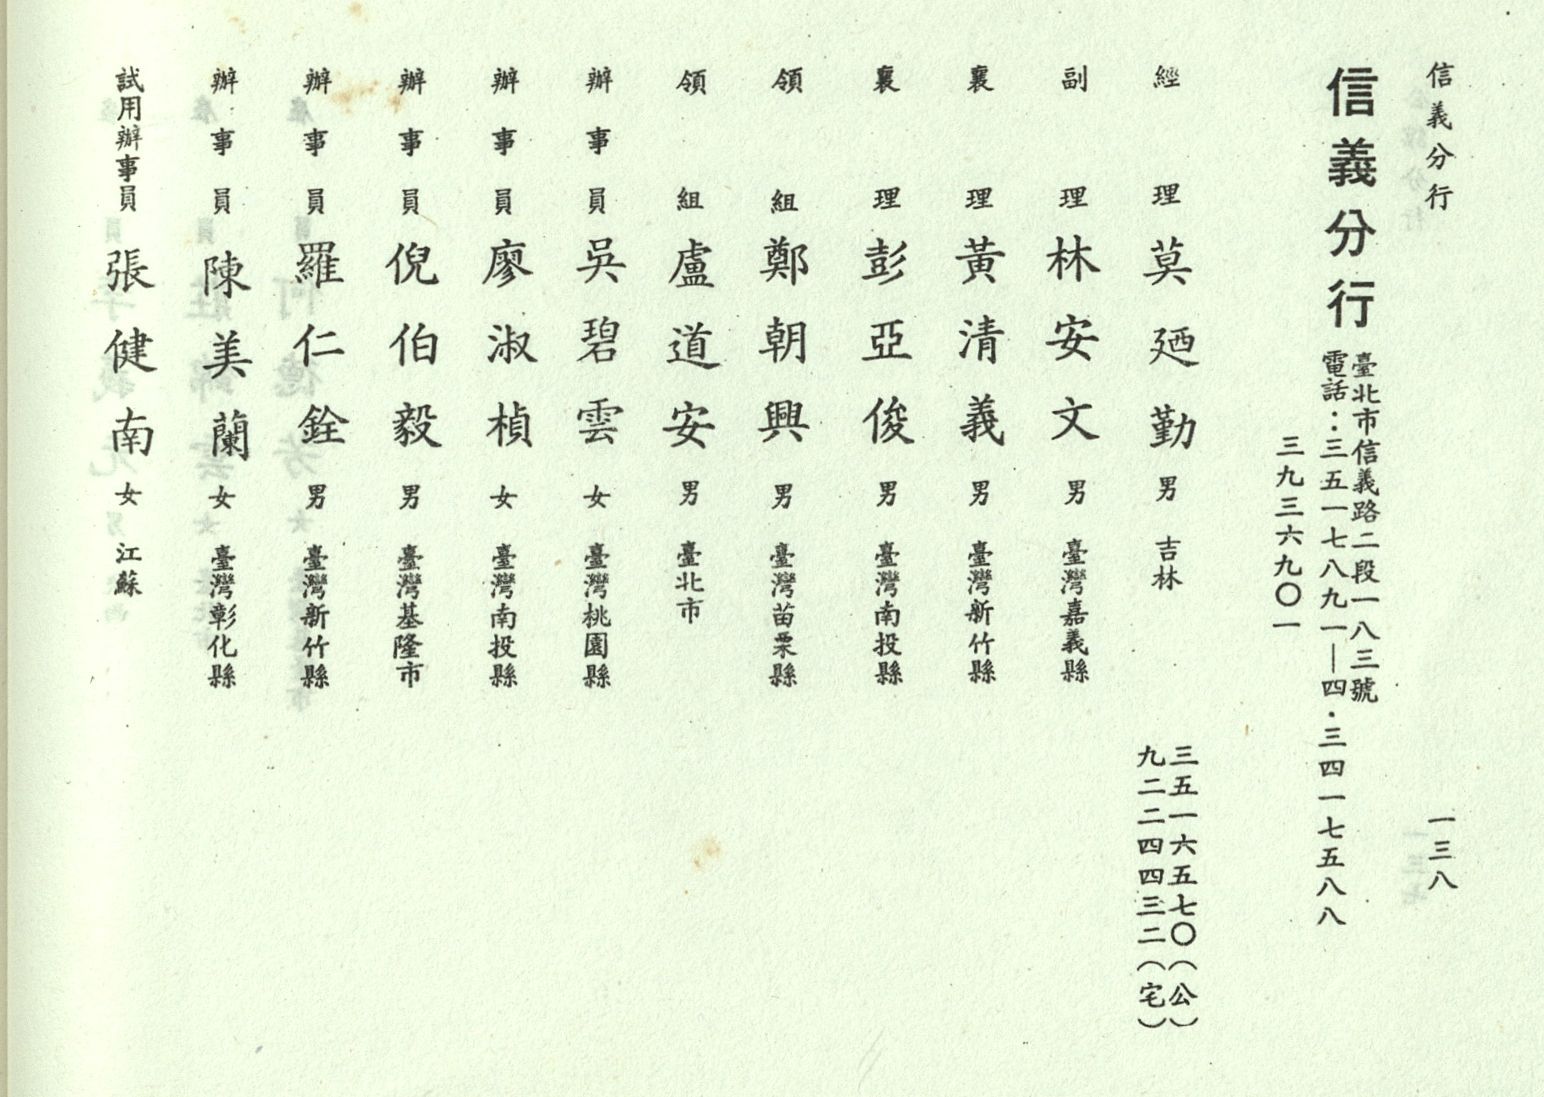 信義分行
一三八
信義分行
臺北市信義路二段一八三號
電話：三五一七八九一—四・三四一七五八八
三九三六九〇一
經理 莫廼勤 男 吉林
三五一六五七〇（公）
九二二四四三二（宅）
副理 林安文 男 臺灣嘉義縣
襄理 黃清義 男 臺灣新竹縣
襄理 彭亞俊 男 臺灣南投縣
領組 鄭朝興 男 臺灣苗栗縣
領組 盧道安 男 臺北市
辦事員 吳碧雲 女 臺灣桃園縣
辦事員 廖淑楨 女 臺灣南投縣
辦事員 倪伯毅 男 臺灣基隆市
辦事員 羅仁銓 男 臺灣新竹縣
辦事員 陳美蘭 女 臺灣彰化縣
試用辦事員 張健南 女 江蘇